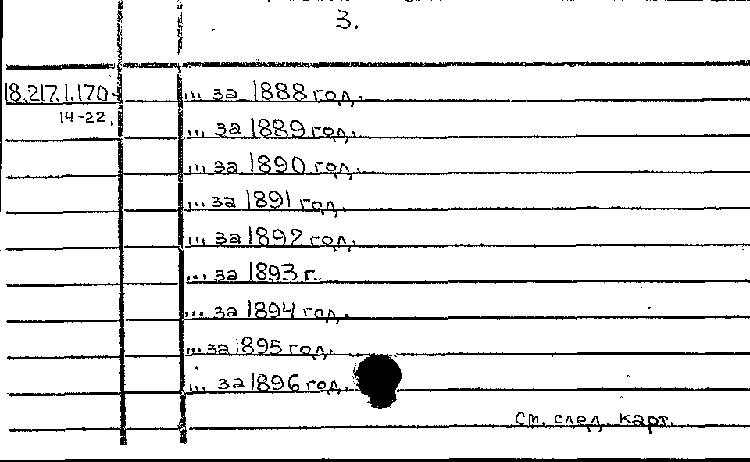 3.
18.217.1.170
14-22.
... за 1888 год.
... за 1889 год.
... за 1890 год.
... за 1891 год.
... за 1892 год.
... за 1893 г.
... за 1894 год.
... за 1895 год.
... за 1896 год.
См. след. карт.